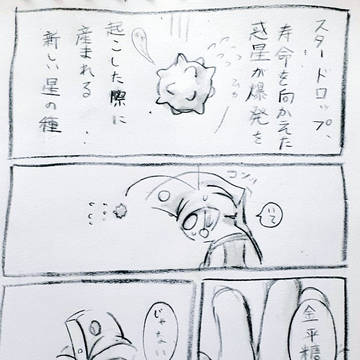 スタードロップ、
寿命を向かえた
惑星が爆発を
起こした際に
産まれる
新しい星の種
コツッ
いて
金平糖
じゃない